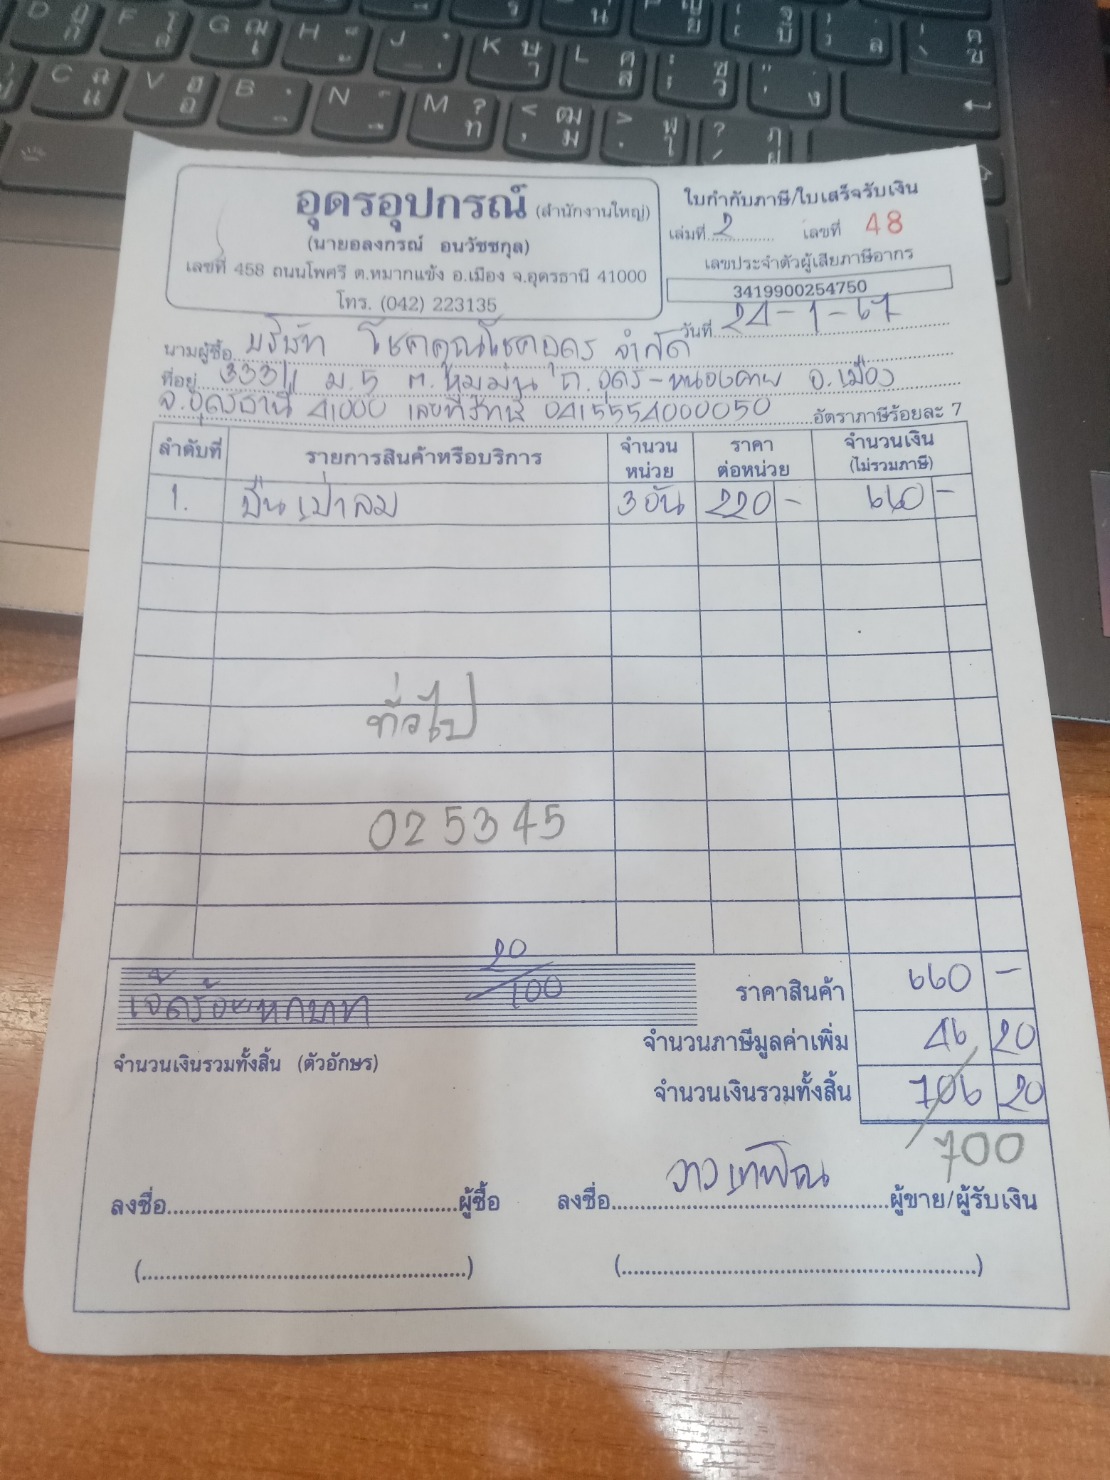 อุดรอุปกรณ์ (สำนักงานใหญ่)
(นายอลงกรณ์ อนวัชชกุล)
เลขที่ 458 ถนนโพศรี ต.หมากแข้ง อ.เมือง จ.อุดรธานี 41000
โทร. (042) 223135
ใบกำกับภาษี/ใบเสร็จรับเงิน
เล่มที่ 2 เลขที่ 48
เลขประจำตัวผู้เสียภาษีอากร
3419900254750
วันที่ 24-1-67
นามผู้ซื้อ บริษัท โชคคูณโชคอุดร จำกัด
ที่อยู่ 333/1 ม.5 ต.หมูม่น ถ.อุดร-หนองคาย อ.เมือง
จ.อุดรธานี 41000 เลขที่ 0415554000050 อัตราภาษีร้อยละ 7
ลำดับที่ รายการสินค้าหรือบริการ จำนวนหน่วย ราคาต่อหน่วย จำนวนเงิน (ไม่รวมภาษี)
1. ปืนเป่าลม 3 อัน 220 - 660 -
ทั่วไป
025345
เจ็ดร้อยหกบาท 20/100
ราคาสินค้า 660 -
จำนวนภาษีมูลค่าเพิ่ม 46 20
จำนวนเงินรวมทั้งสิ้น (ตัวอักษร)
จำนวนเงินรวมทั้งสิ้น 706 20
700
ลงชื่อ ผู้ซื้อ ลงชื่อ ผู้ขาย/ผู้รับเงิน